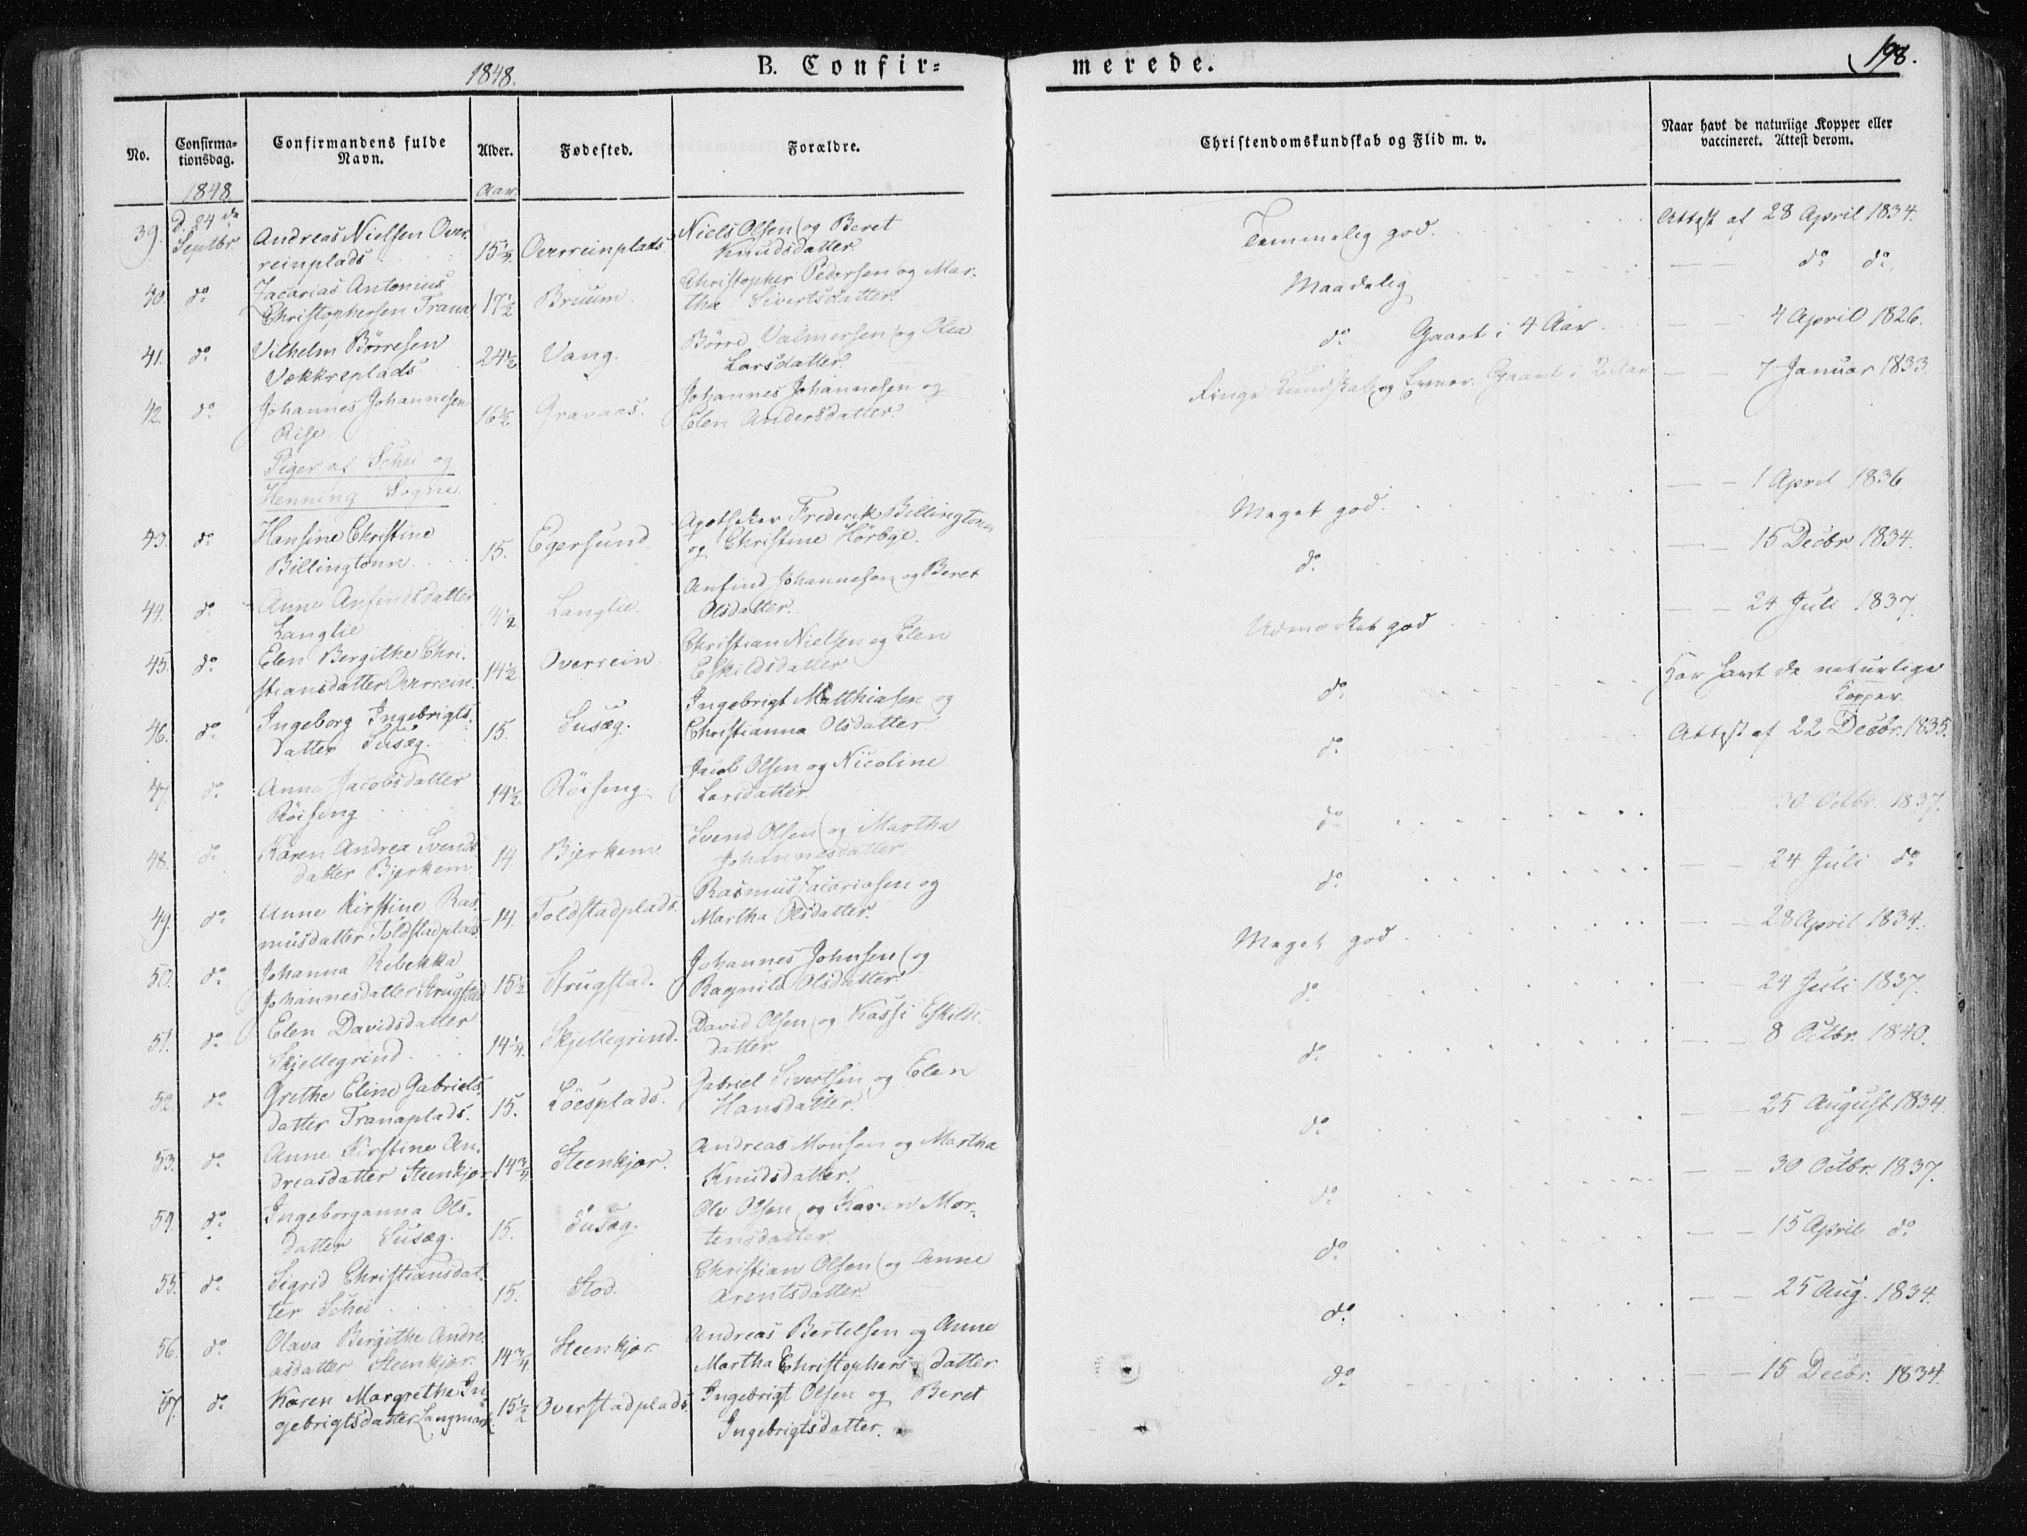 1848.
B. Confir=
merede.
198.
No.
Confirma-
tionsdag.
Confirmandens fulde
Navn.
Alder.
Fødested.
Forældre.
Christendomskundskab og Flid m. v.
Naar havt de naturlige Kopper eller
vaccineret. Attest derom.
1848.
Aar.
39. d. 24de Septbr Andreas Nielsen Over-
reinplads 15 1/4. Overreinplads Niels Olsen og Beret
Knudsdatter. Temmelig god. Attest af 28 April 1834.
40. do Zacarias Antonius
Christophersen Trana 17 1/2 Bruum. Christopher Pedersen og Mar-
tha Sivertsdatter. Maadelig — — do do.
41. do Vilhelm Børresen
Vækkreplads 24 1/2 Vang. Børre Valmersen og Olea
Larsdatter. do Gaaet i 4 Aar. — — 4 April 1826.
42. do Johannes Johannesen
Rise 16 1/2 Gravaas. Johannes Johannesen og
Elen Andersdatter. Ringe Kundskab og Evner. Gaaet i 2 Aar — — 7 Januar 1833.
Piger af Schei og
Henning Sogne.
43. do Hansine Christine
Billingtonn. 15. Egersund. Apotheker Frederik Billingtonn
og Christine Hörbye. Meget god. — — 1 April 1836
44. do Anne Anfindsdatter
Langlie 14 1/2 Langlie. Anfind Johannesen og Beret
Olsdatter. do. — — 15 Decbr 1834.
45. do Elen Bergithe Chri-
stiansdatter Overrein. 14 1/2 Overrein. Christian Nielsen og Elen
Eskildsdatter Udmærket god — — 24 Juli 1837.
46. do Ingeborg Ingebrigts-
datter Susæg. 15. Susæg. Ingebrigt Matthiasen og
Christianna Olsdatter do. Har havt de naturlige
Kopper.
47. do Anne Jacobsdatter
Röiseng 14 1/2. Röiseng. Jacob Olsen og Nicoline
Larsdatter. do. Attest af 22 Decbr. 1835.
48. do Karen Andrea Svends-
datter Bjerkem 14 Bjerkem Svend Olsen og Martha
Johannesdatter. do. — — 30 Octbr. 1837.
49. do Anne Kirstine Ras-
musdatter Toldstadplads 14. Toldstadplads. Rasmus Zacariasen og
Martha Olsdatter. do. — — 24 Juli do
50. do Johanna Rebekka
Johannesdatter Strugstad 15 1/2 Strugstad. Johannes Johnsen og
Ragnild Olsdatter. Meget god. — — 28 April 1834.
51. do Elen Davidsdatter
Skjellegrind. 14 1/4. Skjellegrind. David Olsen og Kassi Eskilds-
datter. do. — — 24 Juli 1837.
52. do Grethe Eline Gabriels-
datter Tranaplads. 15. Löesplads. Gabriel Sivertsen og Elen
Hansdatter. do. — — 8 Octbr. 1840.
53. do Anne Kirstine An-
dreasdatter Steenkjær 14 3/4. Steenkjær. Andreas Monsen og Martha
Knudsdatter. do. — — 25 August 1834.
54. do. Ingeborganna Ols-
datter Susæg. 15. Susæg. Ole Olsen og Karen Mor-
tensdatter. do. — — 30 Octbr. 1837.
55. do Sigrid Christiansdat-
ter Schei 15. Stod. Christian Olsen og Anne
Arentsdatter. do. — — 15 April do
56. do Olava Birgithe Andre-
asdatter Steenkjær. 14 3/4 Steenkjær Andreas Bertelsen og Anne
Martha Christophersdatter do. — — 25 Aug. 1834.
57. do Karen Margrethe In-
gebrigtsdatter Langmark. 15 1/2 Overstadplads. Ingebrigt Olsen og Beret
Ingebrigtsdatter. do. — — 15 Decbr. 1834.